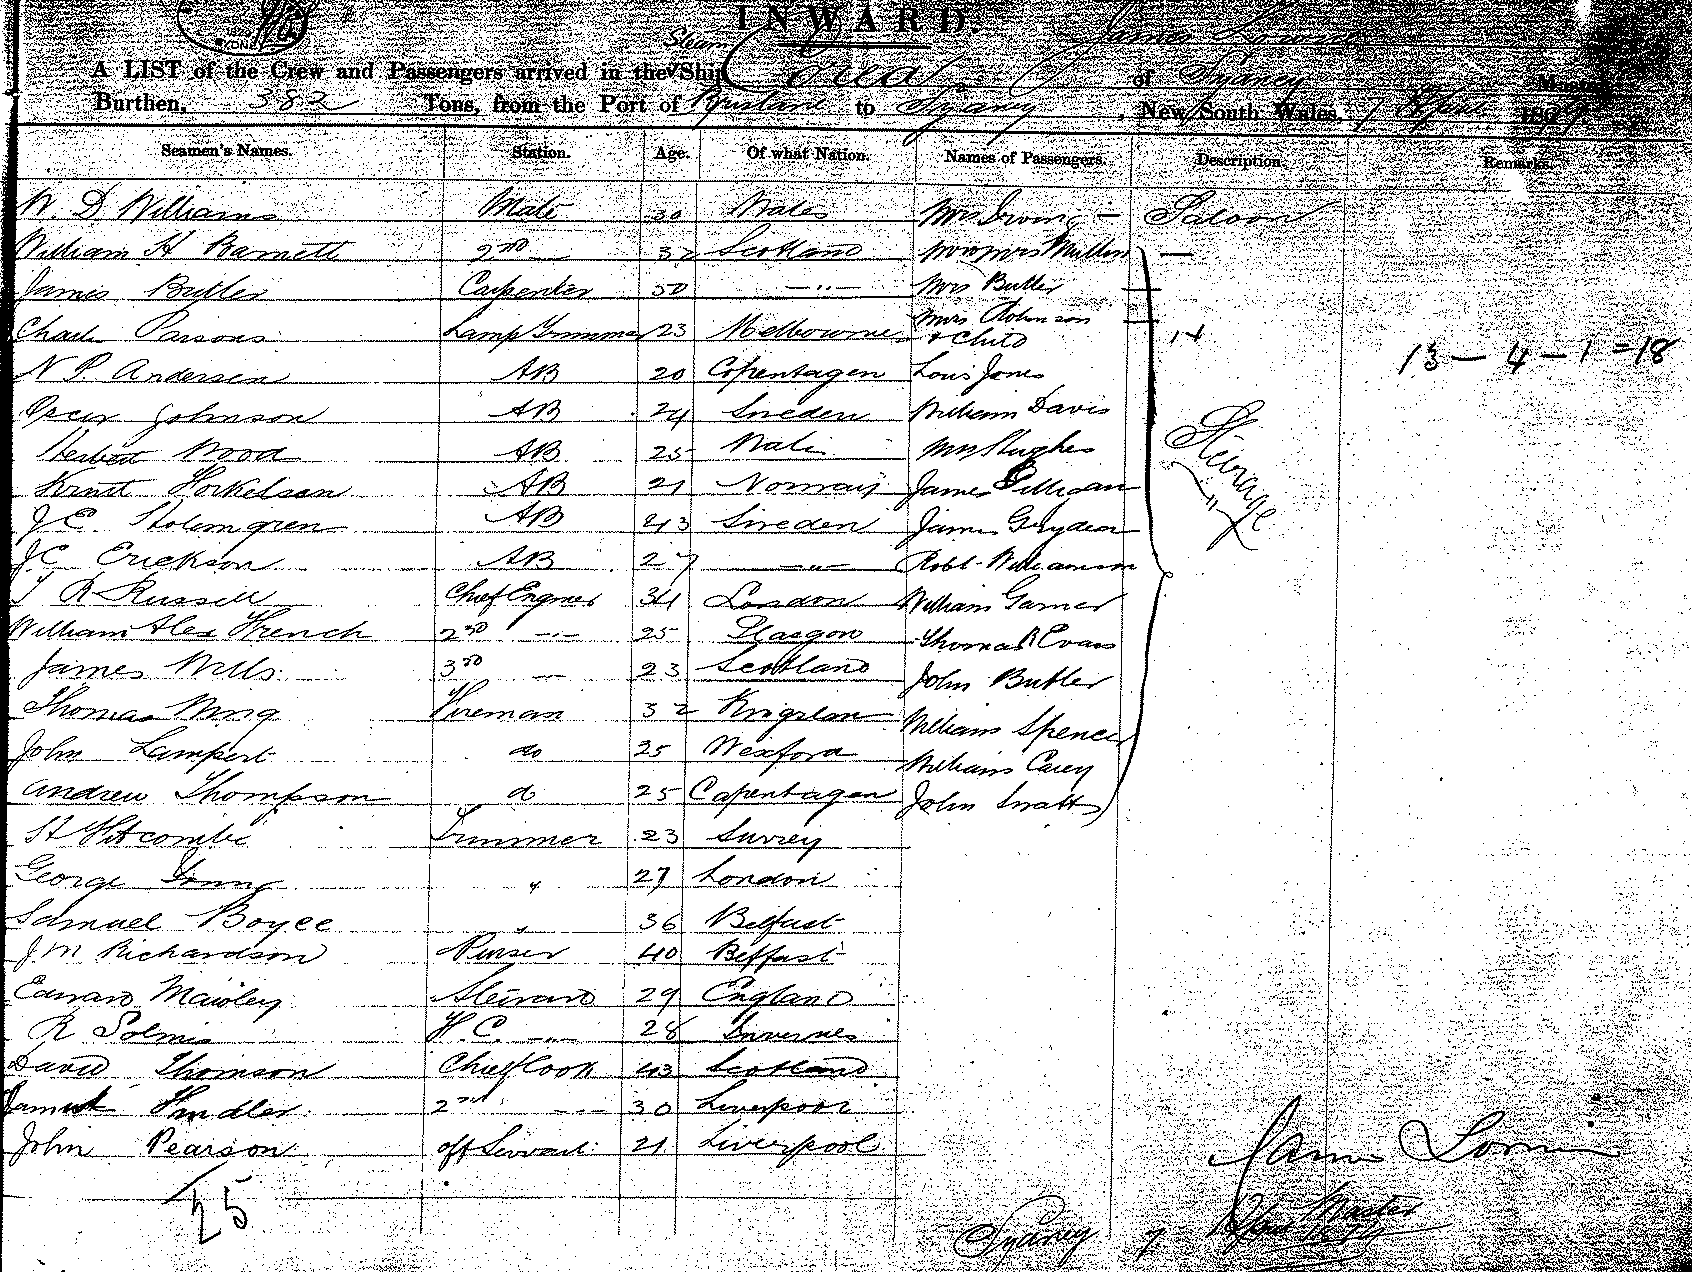 INWARD.
Steam
A LIST of the Crew and Passengers arrived in the Ship of Sydney Master
Burthen, 382 Tons, from the Port of Brisbane to Sydney, New South Wales, 189
Seamen's Names. Station. Age. Of what Nation. Names of Passengers. Description. Remarks.
W. D Williams Mate 30 Wales Mrs Irving — Saloon
William H Barnett 2nd — 32 Scotland Mr & Mrs —
James Butler Carpenter 50 —"— Mrs Butler —
Charles Parsons Lamp Trimmer 23 Melbourne Mrs Robinson & Child — 17
13 — 4 — 1 = 18
N P. Andersen AB 20 Copenhagen Louis Jones
Oscar Johnson AB 24 Sweden William Davis
Herbert Wood AB 25 Wales Mrs Hughes
Steerage
Ernst Horkelsen AB 21 Norway James Gilligan
J E. Holmgren AB 43 Sweden James
J C. Erickson AB 27 —"— Robt. Williamson
T R Russell Chief Engineer 34 London William Garner
William Alex French 2nd —"— 25 Glasgow Thomas R Evans
James Wills 3rd — 23 Scotland John Butler
Thomas King Fireman 32 William Spencer
John Lampert do 25 Wexford William Carey
Andrew Thompson do 25 Copenhagen John
Trimmer 23 Surrey
George Young " 27 London
Samuel Boyce " 36 Belfast
J. M Richardson Purser 40 Belfast
Edward Mawley Steward 29 England
R 28 Inverness
David Thomson Chief Cook 43 Scotland
Hindler 2nd —"— 30 Liverpool
John Pearson off Servant 21 Liverpool
25
James
Master
Sydney 7